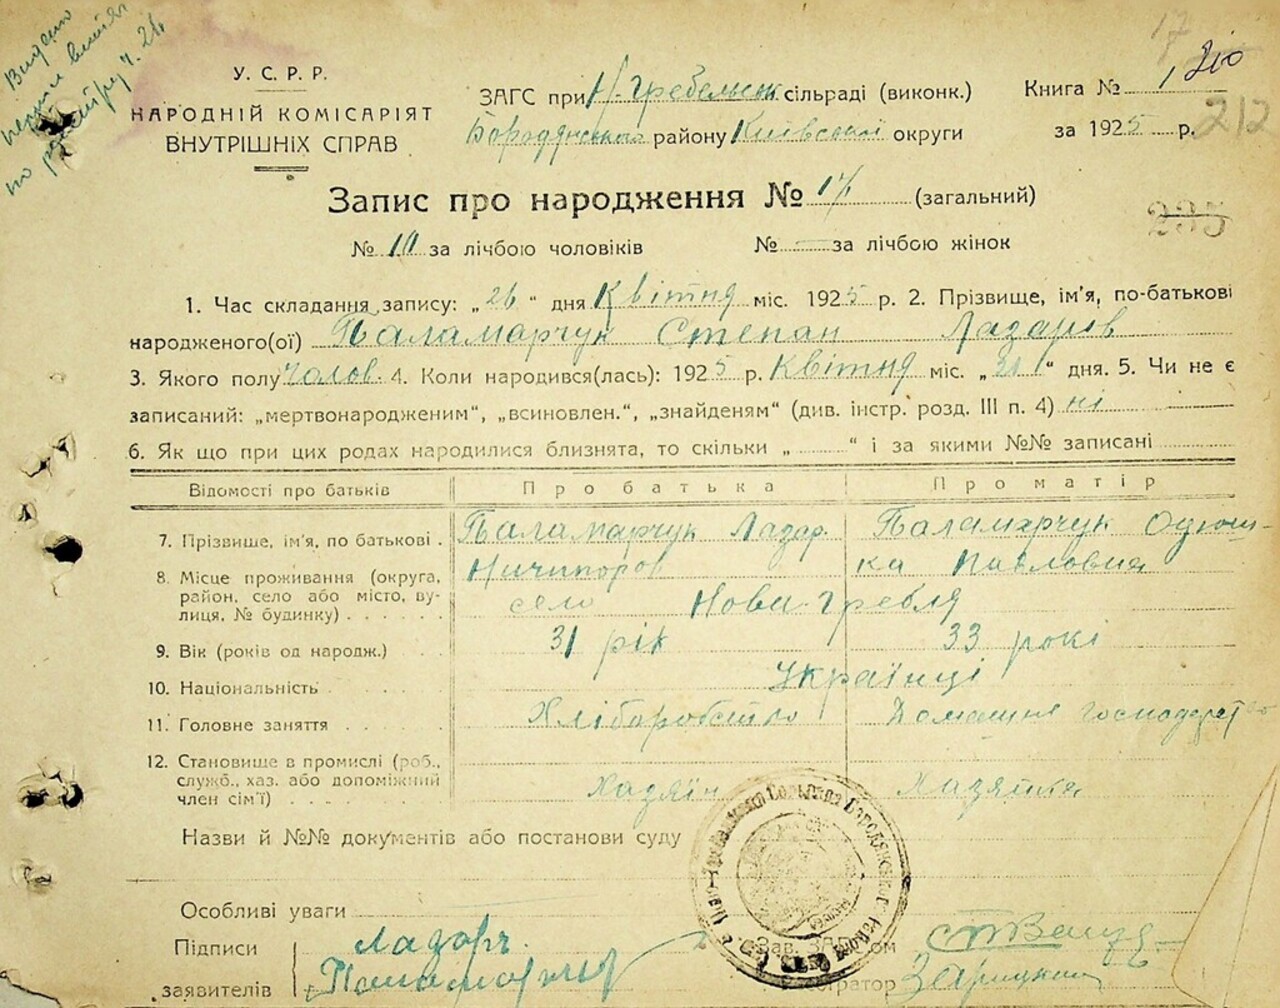 Видано
У. С. Р. Р.
НАРОДНІЙ КОМІСАРІЯТ
ВНУТРІШНІХ СПРАВ
ЗАГС при Н-Гребельск сільраді (виконк.)
Бородянського району Київської округи
Книга № 1
за 1925 р.
210
17
212
235
Запис про народження № 17 (загальний)
№ 10 за лічбою чоловіків № — за лічбою жінок
1. Час складання запису: „26“ дня Квітня міс. 1925 р. 2. Прізвище, ім'я, по-батькові
народженого(ої) Паламарчук Степан Лазаров
3. Якого полу чолов. 4. Коли народився(лась): 1925 р. Квітня міс. „ “ дня. 5. Чи не є
записаний: „мертвонародженим“, „всиновлен.“, „знайденям“ (див. інстр. розд. III п. 4) ні
6. Як що при цих родах народилися близнята, то скільки „ “ і за якими №№ записані
Відомості про батьків Про батька Про матір
7. Прізвище, ім'я, по батькові . Паламарчук Лазар. Паламарчук
Ничипоров Павловна
8. Місце проживання (округа, район, село або місто, вулиця, № будинку) село Нова-Гребля
9. Вік (років од народж.) 31 рік 33 рокі
10. Національність Українці
11. Головне заняття Хліборобство Домашнє господарство
12. Становище в промислі (роб.,
служб., хаз. або допоміжний
член сім'ї) Хазяїн Хазяйка
Назви й №№ документів або постанови суду
Особливі уваги
Підписи Лазорь Зав. ЗАГ ом
заявителів Паламарчук Зарицкий